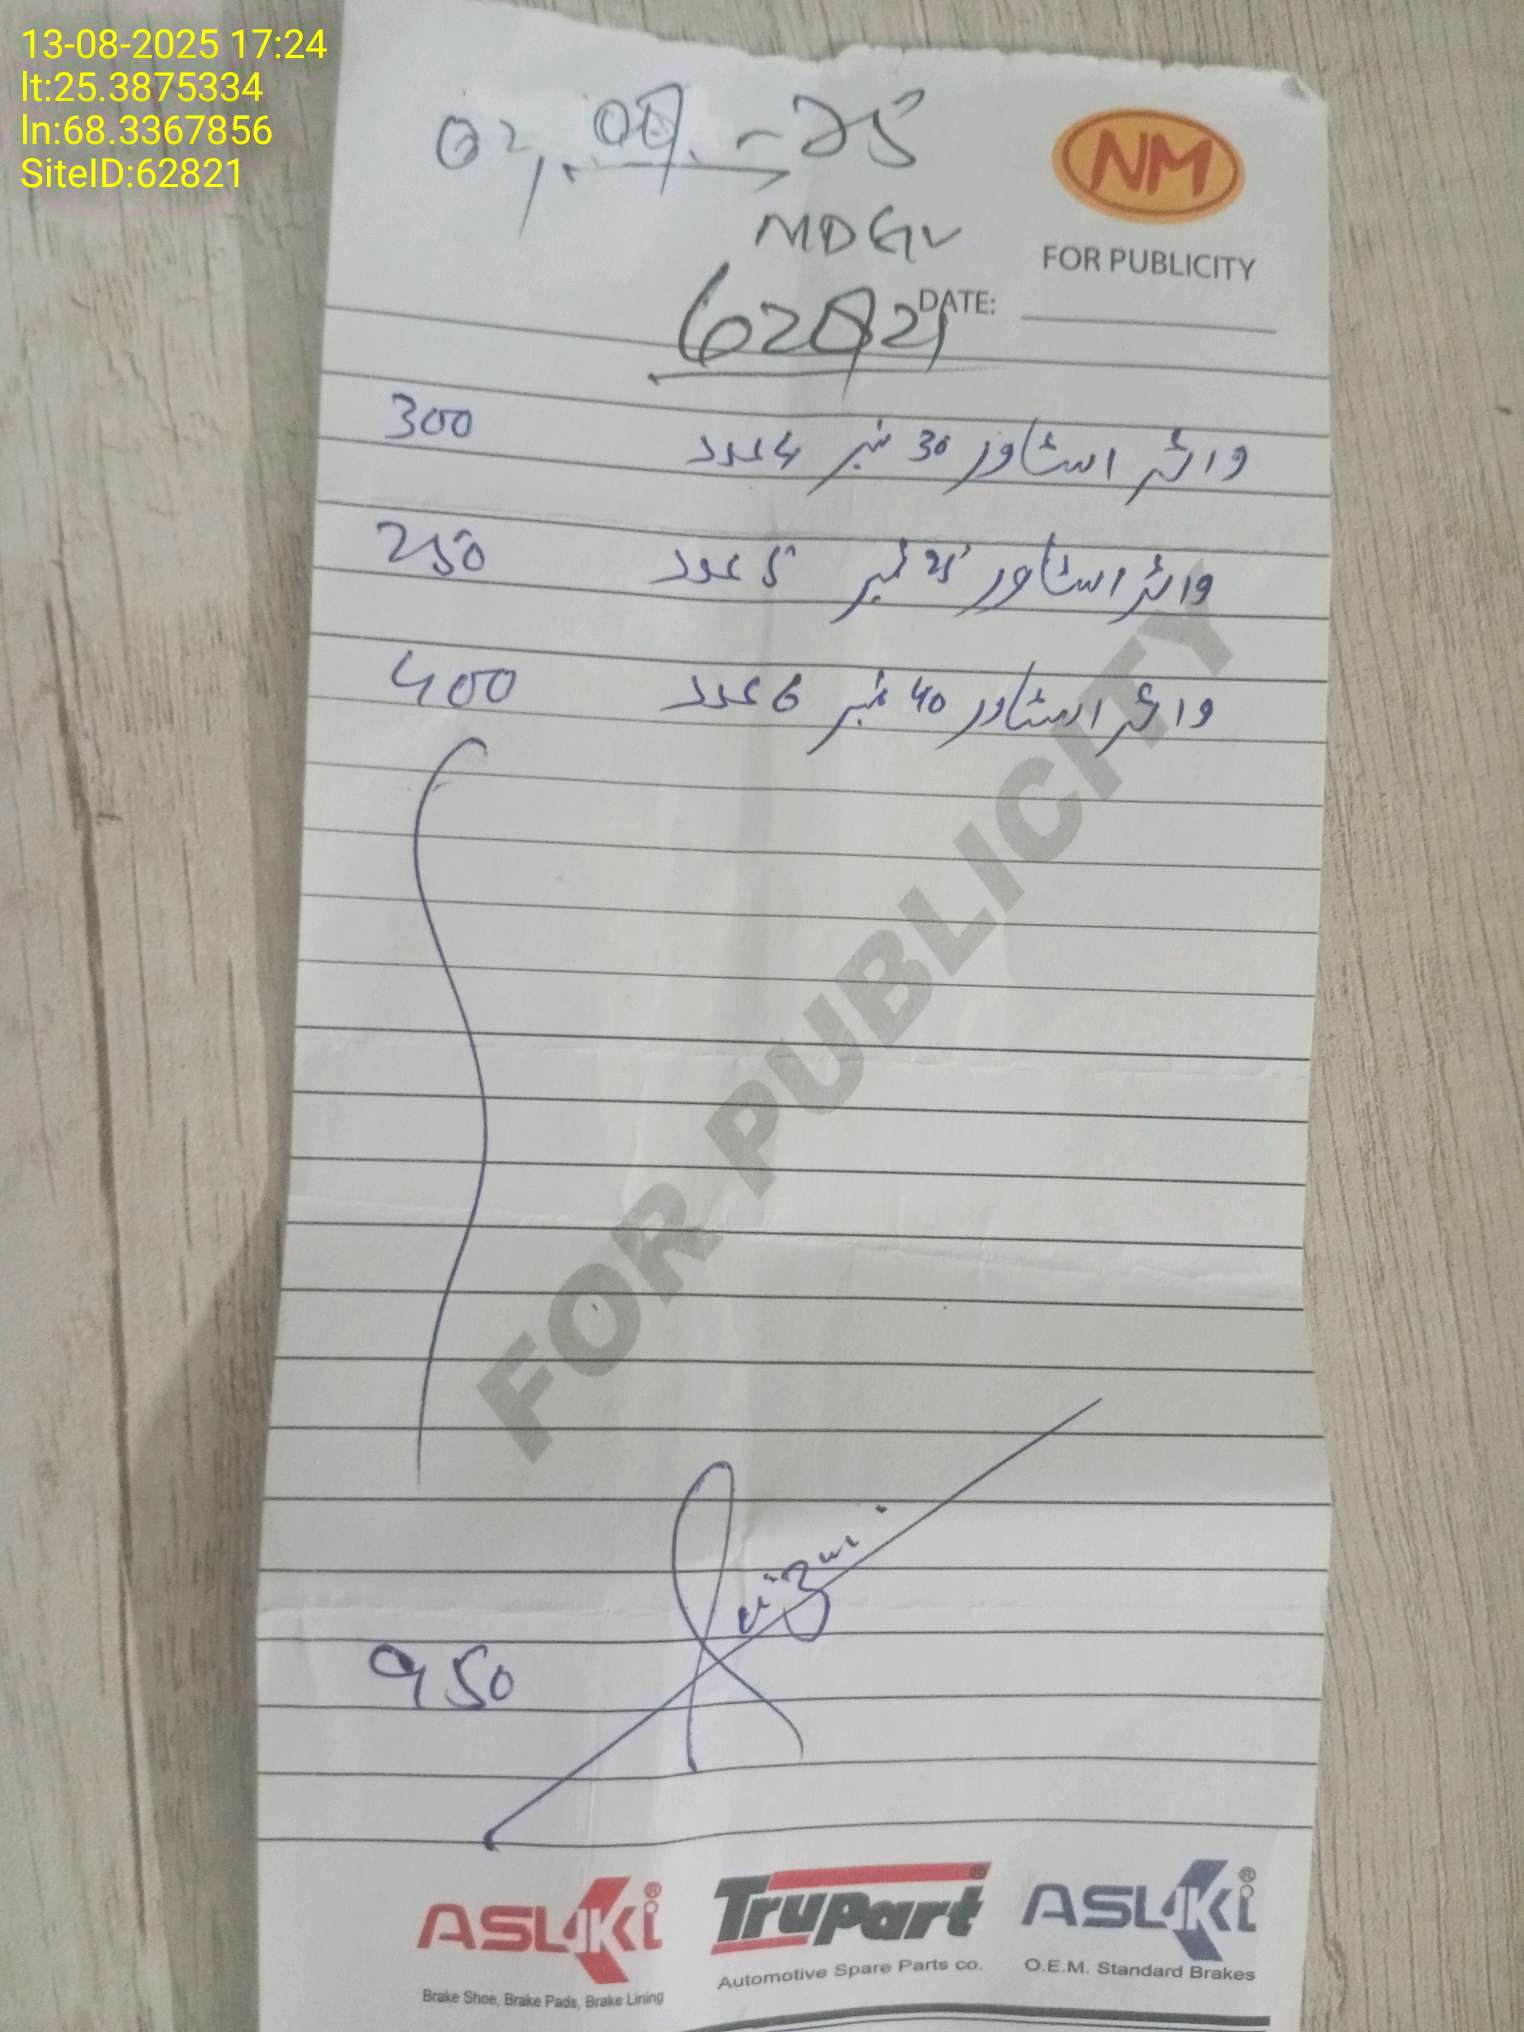 13-08-2025 17:24
lt:25.3875334
ln:68.3367856
SiteID:62821
02, 08 - 25
NM
MDGW
FOR PUBLICITY
62821
DATE:
وائر استاور 30 نمبر 4 عدد 300
وائر استاور 25 نمبر 5 عدد 250
وائر استاور 40 نمبر 6 عدد 400
FOR PUBLICITY
950
ASUKI®
Brake Shoe, Brake Pads, Brake Lining
Trupart
Automotive Spare Parts co.
ASUKI®
O.E.M. Standard Brakes